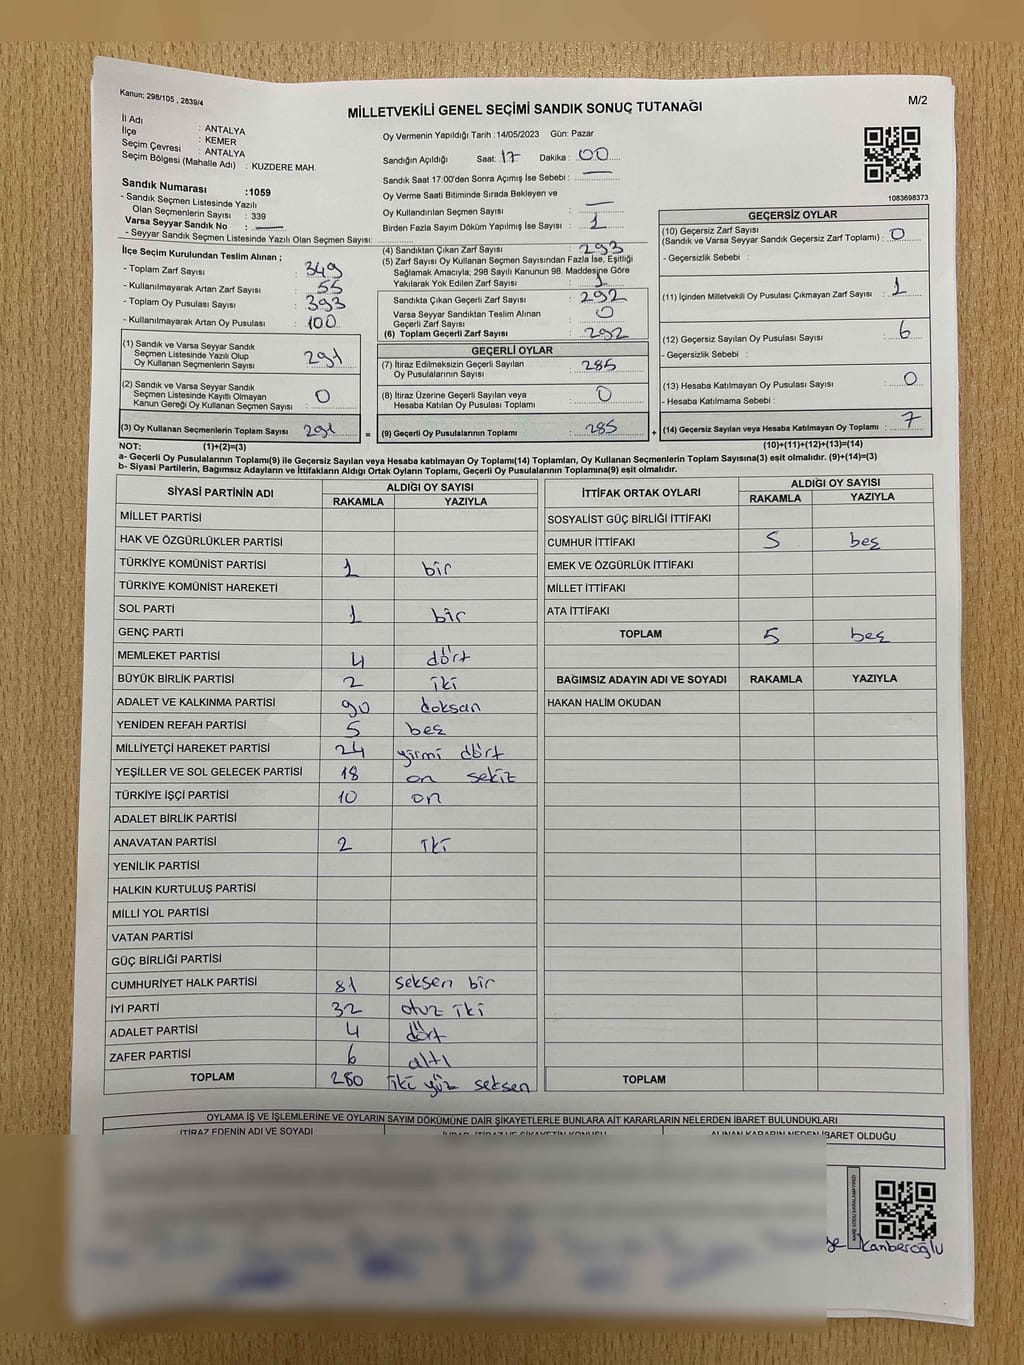 Kanun; 298/105 , 2839/4
M/2
MİLLETVEKİLİ GENEL SEÇİMİ SANDIK SONUÇ TUTANAĞI
İl Adı : ANTALYA
İlçe : KEMER
Seçim Çevresi : ANTALYA
Seçim Bölgesi (Mahalle Adı) : KUZDERE MAH.
Sandık Numarası :1059
- Sandık Seçmen Listesinde Yazılı
Olan Seçmenlerin Sayısı : 339
Varsa Seyyar Sandık No :
- Seyyar Sandık Seçmen Listesinde Yazılı Olan Seçmen Sayısı:
Oy Vermenin Yapıldığı Tarih :14/05/2023 Gün: Pazar
Sandığın Açıldığı Saat: 17 Dakika : 00
Sandık Saat 17:00'den Sonra Açımış İse Sebebi : —
Oy Verme Saati Bitiminde Sırada Bekleyen ve
Oy Kullandırılan Seçmen Sayısı : —
Birden Fazla Sayım Döküm Yapılmış İse Sayısı : 1
1083698373
İlçe Seçim Kurulundan Teslim Alınan ;
- Toplam Zarf Sayısı : 349
- Kullanılmayarak Artan Zarf Sayısı : 55
- Toplam Oy Pusulası Sayısı : 393
- Kullanılmayarak Artan Oy Pusulası : 100
(1) Sandık ve Varsa Seyyar Sandık
Seçmen Listesinde Yazılı Olup
Oy Kullanan Seçmenlerin Sayısı : 291
(2) Sandık ve Varsa Seyyar Sandık
Seçmen Listesinde Kayıtlı Olmayan
Kanun Gereği Oy Kullanan Seçmen Sayısı : 0
(3) Oy Kullanan Seçmenlerin Toplam Sayısı : 291
(4) Sandıktan Çıkan Zarf Sayısı : 293
(5) Zarf Sayısı Oy Kullanan Seçmen Sayısından Fazla İse, Eşitliği
Sağlamak Amacıyla; 298 Sayılı Kanunun 98. Maddesine Göre
Yakılarak Yok Edilen Zarf Sayısı : 1
Sandıkta Çıkan Geçerli Zarf Sayısı : 292
Varsa Seyyar Sandıktan Teslim Alınan
Geçerli Zarf Sayısı : 0
(6) Toplam Geçerli Zarf Sayısı : 292
GEÇERLİ OYLAR
(7) İtiraz Edilmeksizin Geçerli Sayılan
Oy Pusulalarının Sayısı : 285
(8) İtiraz Üzerine Geçerli Sayılan veya
Hesaba Katılan Oy Pusulası Toplamı : 0
= (9) Geçerli Oy Pusulalarının Toplamı : 285
GEÇERSİZ OYLAR
(10) Geçersiz Zarf Sayısı
(Sandık ve Varsa Seyyar Sandık Geçersiz Zarf Toplamı) : 0
- Geçersizlik Sebebi :
(11) İçinden Milletvekili Oy Pusulası Çıkmayan Zarf Sayısı : 1
(12) Geçersiz Sayılan Oy Pusulası Sayısı : 6
- Geçersizlik Sebebi :
(13) Hesaba Katılmayan Oy Pusulası Sayısı : 0
- Hesaba Katılmama Sebebi :
+ (14) Geçersiz Sayılan veya Hesaba Katılmayan Oy Toplamı : 7
NOT: (1)+(2)=(3) (10)+(11)+(12)+(13)=(14)
a- Geçerli Oy Pusulalarının Toplamı(9) ile Geçersiz Sayılan veya Hesaba katılmayan Oy Toplamı(14) Toplamları, Oy Kullanan Seçmenlerin Toplam Sayısına(3) eşit olmalıdır. (9)+(14)=(3)
b- Siyasi Partilerin, Bağımsız Adayların ve İttifakların Aldığı Ortak Oyların Toplamı, Geçerli Oy Pusulalarının Toplamına(9) eşit olmalıdır.
SİYASİ PARTİNİN ADI ALDIĞI OY SAYISI
RAKAMLA YAZIYLA
MİLLET PARTİSİ
HAK VE ÖZGÜRLÜKLER PARTİSİ
TÜRKİYE KOMÜNİST PARTİSİ 1 bir
TÜRKİYE KOMÜNİST HAREKETİ
SOL PARTİ 1 bir
GENÇ PARTİ
MEMLEKET PARTİSİ 4 dört
BÜYÜK BİRLİK PARTİSİ 2 iki
ADALET VE KALKINMA PARTİSİ 90 doksan
YENİDEN REFAH PARTİSİ 5 beş
MİLLİYETÇİ HAREKET PARTİSİ 24 yirmi dört
YEŞİLLER VE SOL GELECEK PARTİSİ 18 on sekiz
TÜRKİYE İŞÇİ PARTİSİ 10 on
ADALET BİRLİK PARTİSİ
ANAVATAN PARTİSİ 2 iki
YENİLİK PARTİSİ
HALKIN KURTULUŞ PARTİSİ
MİLLİ YOL PARTİSİ
VATAN PARTİSİ
GÜÇ BİRLİĞİ PARTİSİ
CUMHURİYET HALK PARTİSİ 81 seksen bir
İYİ PARTİ 32 otuz iki
ADALET PARTİSİ 4 dört
ZAFER PARTİSİ 6 altı
TOPLAM 280 iki yüz seksen
İTTİFAK ORTAK OYLARI ALDIĞI OY SAYISI
RAKAMLA YAZIYLA
SOSYALİST GÜÇ BİRLİĞİ İTTİFAKI
CUMHUR İTTİFAKI 5 beş
EMEK VE ÖZGÜRLÜK İTTİFAKI
MİLLET İTTİFAKI
ATA İTTİFAKI
TOPLAM 5 beş
BAĞIMSIZ ADAYIN ADI VE SOYADI RAKAMLA YAZIYLA
HAKAN HALİM OKUDAN
TOPLAM
OYLAMA İŞ VE İŞLEMLERİNE VE OYLARIN SAYIM DÖKÜMÜNE DAİR ŞİKAYETLERLE BUNLARA AİT KARARLARIN NELERDEN İBARET BULUNDUKLARI
İTİRAZ EDENİN ADI VE SOYADI
ALINAN KARARIN NEDEN İBARET OLDUĞU
Kanberoğlu